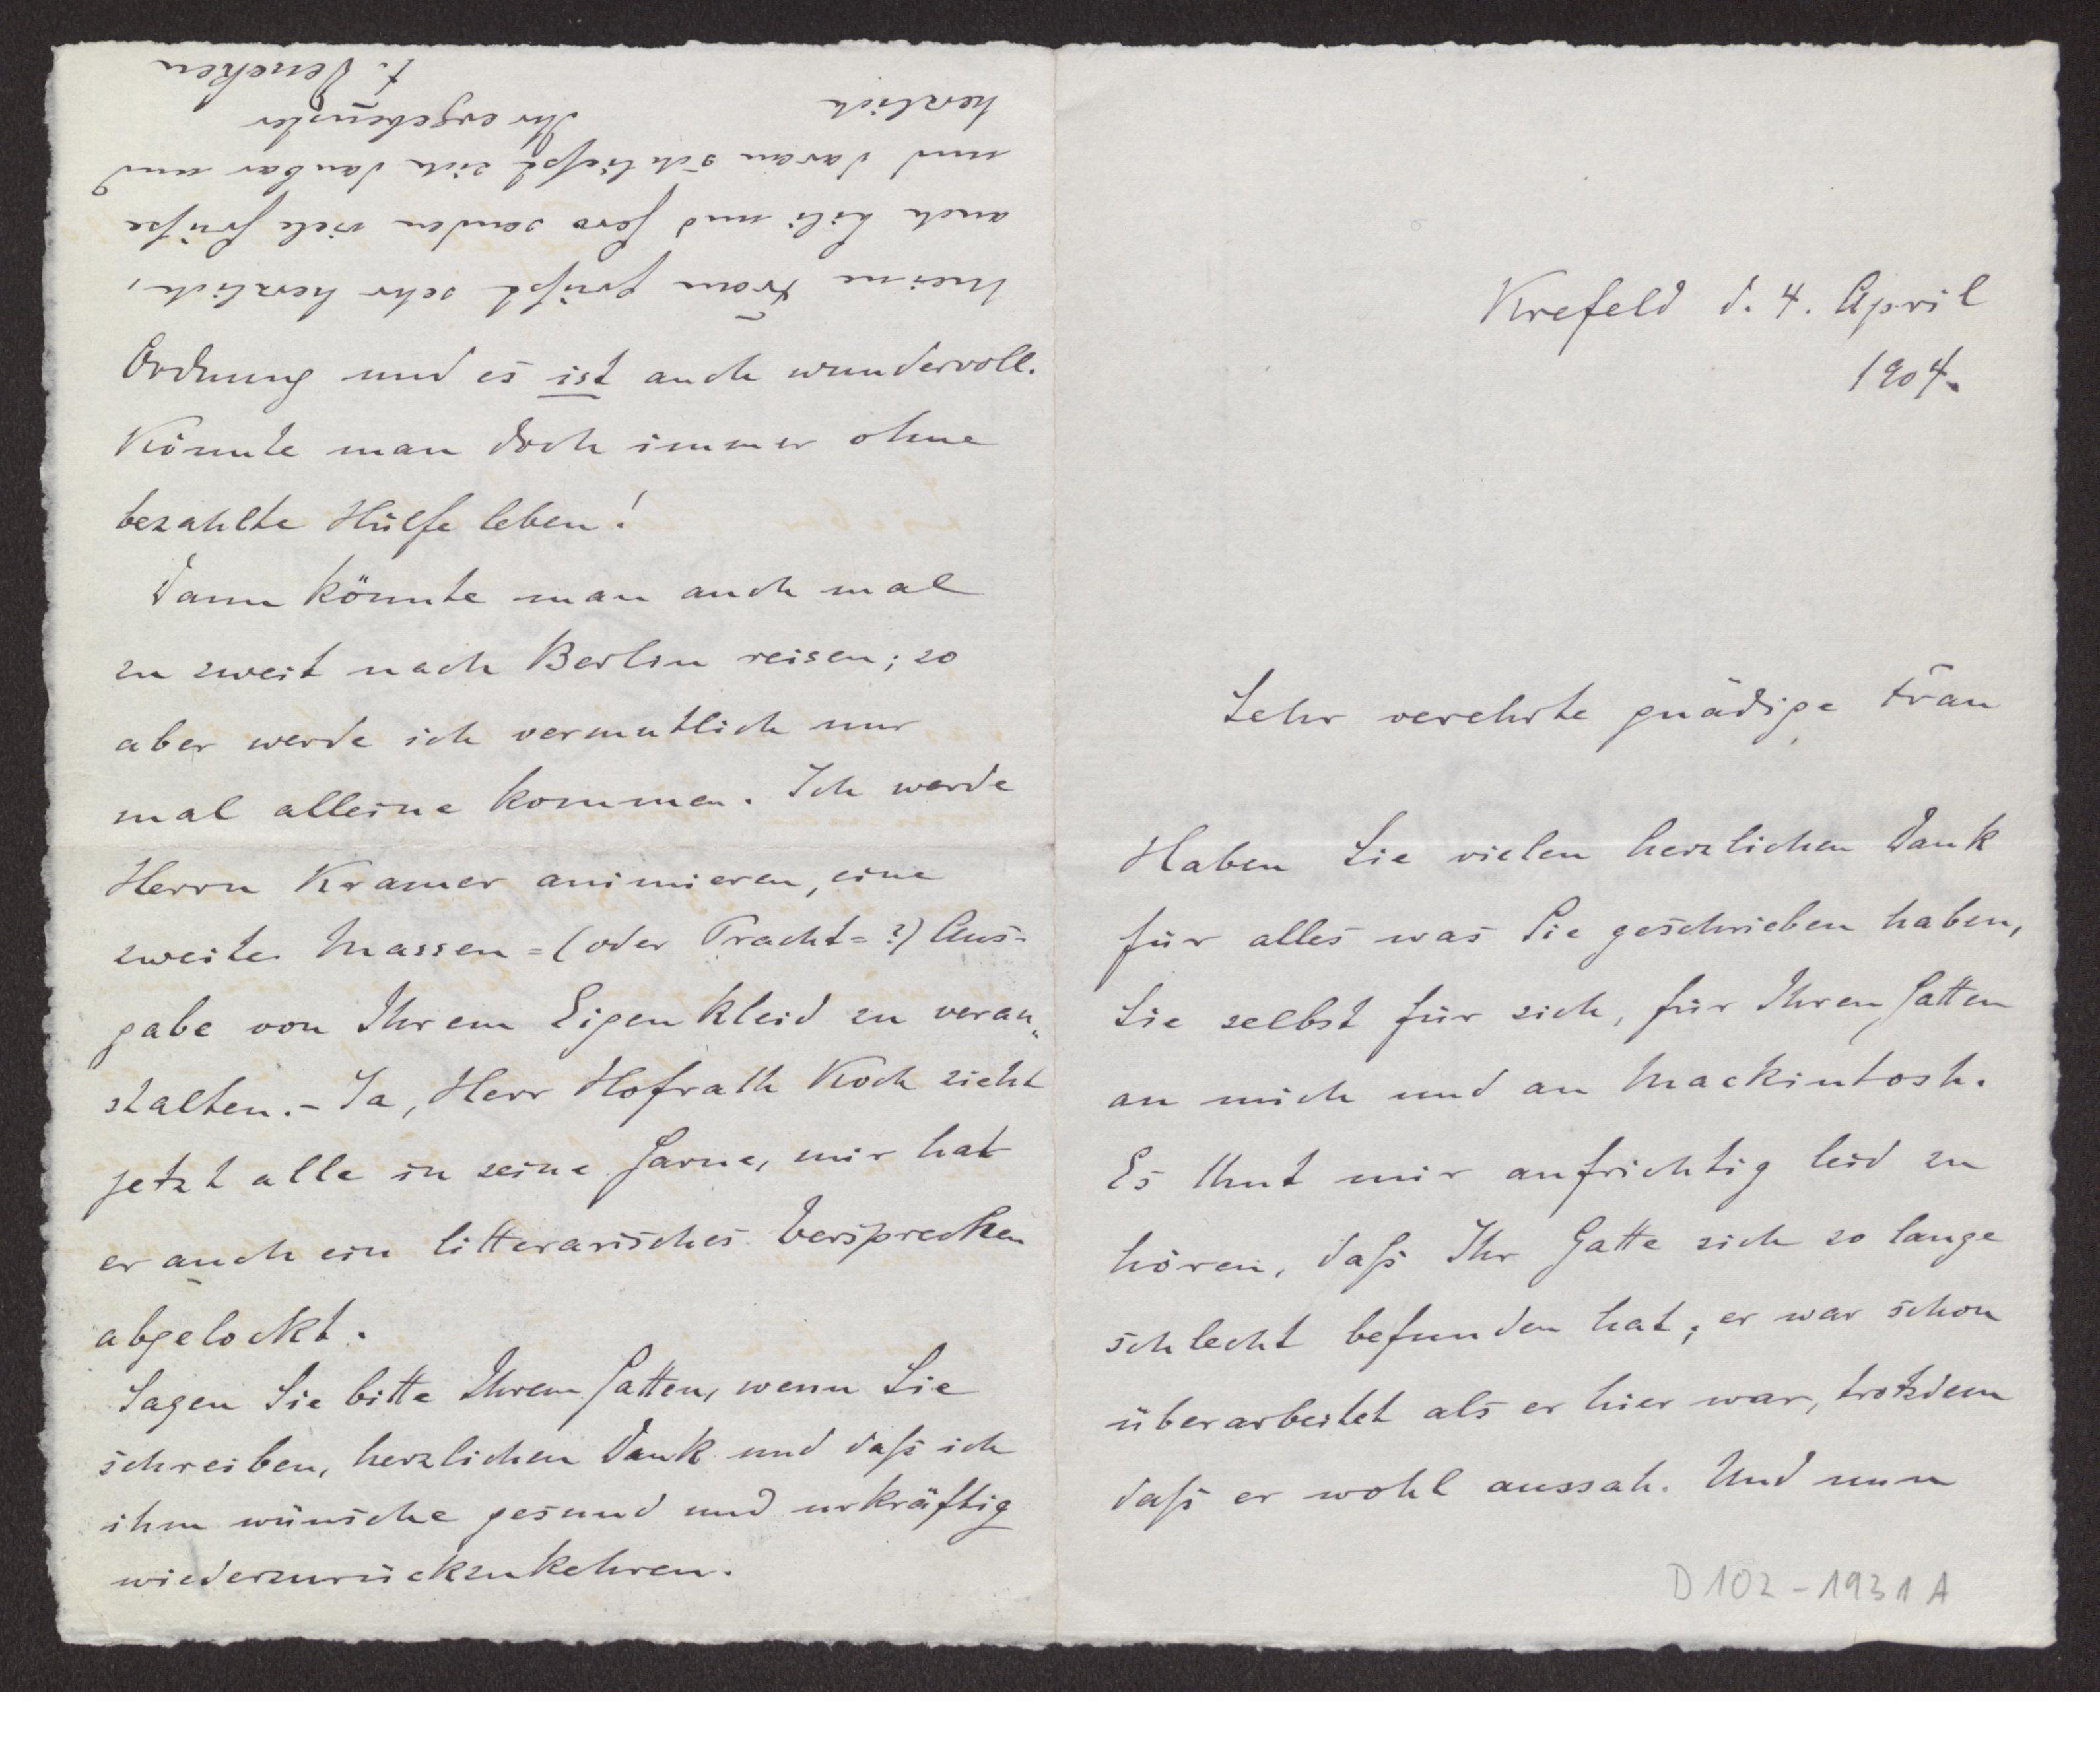 Krefeld d. 4. April
1904.
Sehr verehrte gnädige Frau
Haben Sie vielen herzlichen Dank
für alles was Sie geschrieben haben,
Sie selbst für sich, für Ihren Gatten
an mich und an Mackintosh.
Es thut mir aufrichtig leid zu
hören, daß Ihr Gatte sich so lange
schlecht befunden hat; er war schon
überarbeitet als er hier war, trotzdem
daß er wohl aussah. Und nun
D 102 - 1931 A
Ordnung und es ist auch wundervoll.
Könnte man doch immer ohne
bezahlte Hülfe leben!
Dann könnte man auch mal
zu zweit nach Berlin reisen; so
aber werde ich vermutlich nur
mal alleine kommen. Ich werde
Herrn Kramer animieren, eine
zweite Massen= (oder Pracht=?) Aus-
gabe von Ihrem Eigenkleid zu veran„
stalten. - Ja, Herr Hofrath Koch zieht
jetzt alle in seine Garne, mir hat
er auch ein litterarisches Versprechen
abgelockt.
Sagen Sie bitte Ihrem Gatten, wenn Sie
schreiben, herzlichen Dank und daß ich
ihm wünsche gesund und urkräftig
wiederzurückzukehren.
Meine Frau grüßt sehr herzlich,
auch Lili und Gero senden viele Grüße
und daran schließt sich dankbar und
herzlich
Ihr ergebenster
F. Deneken